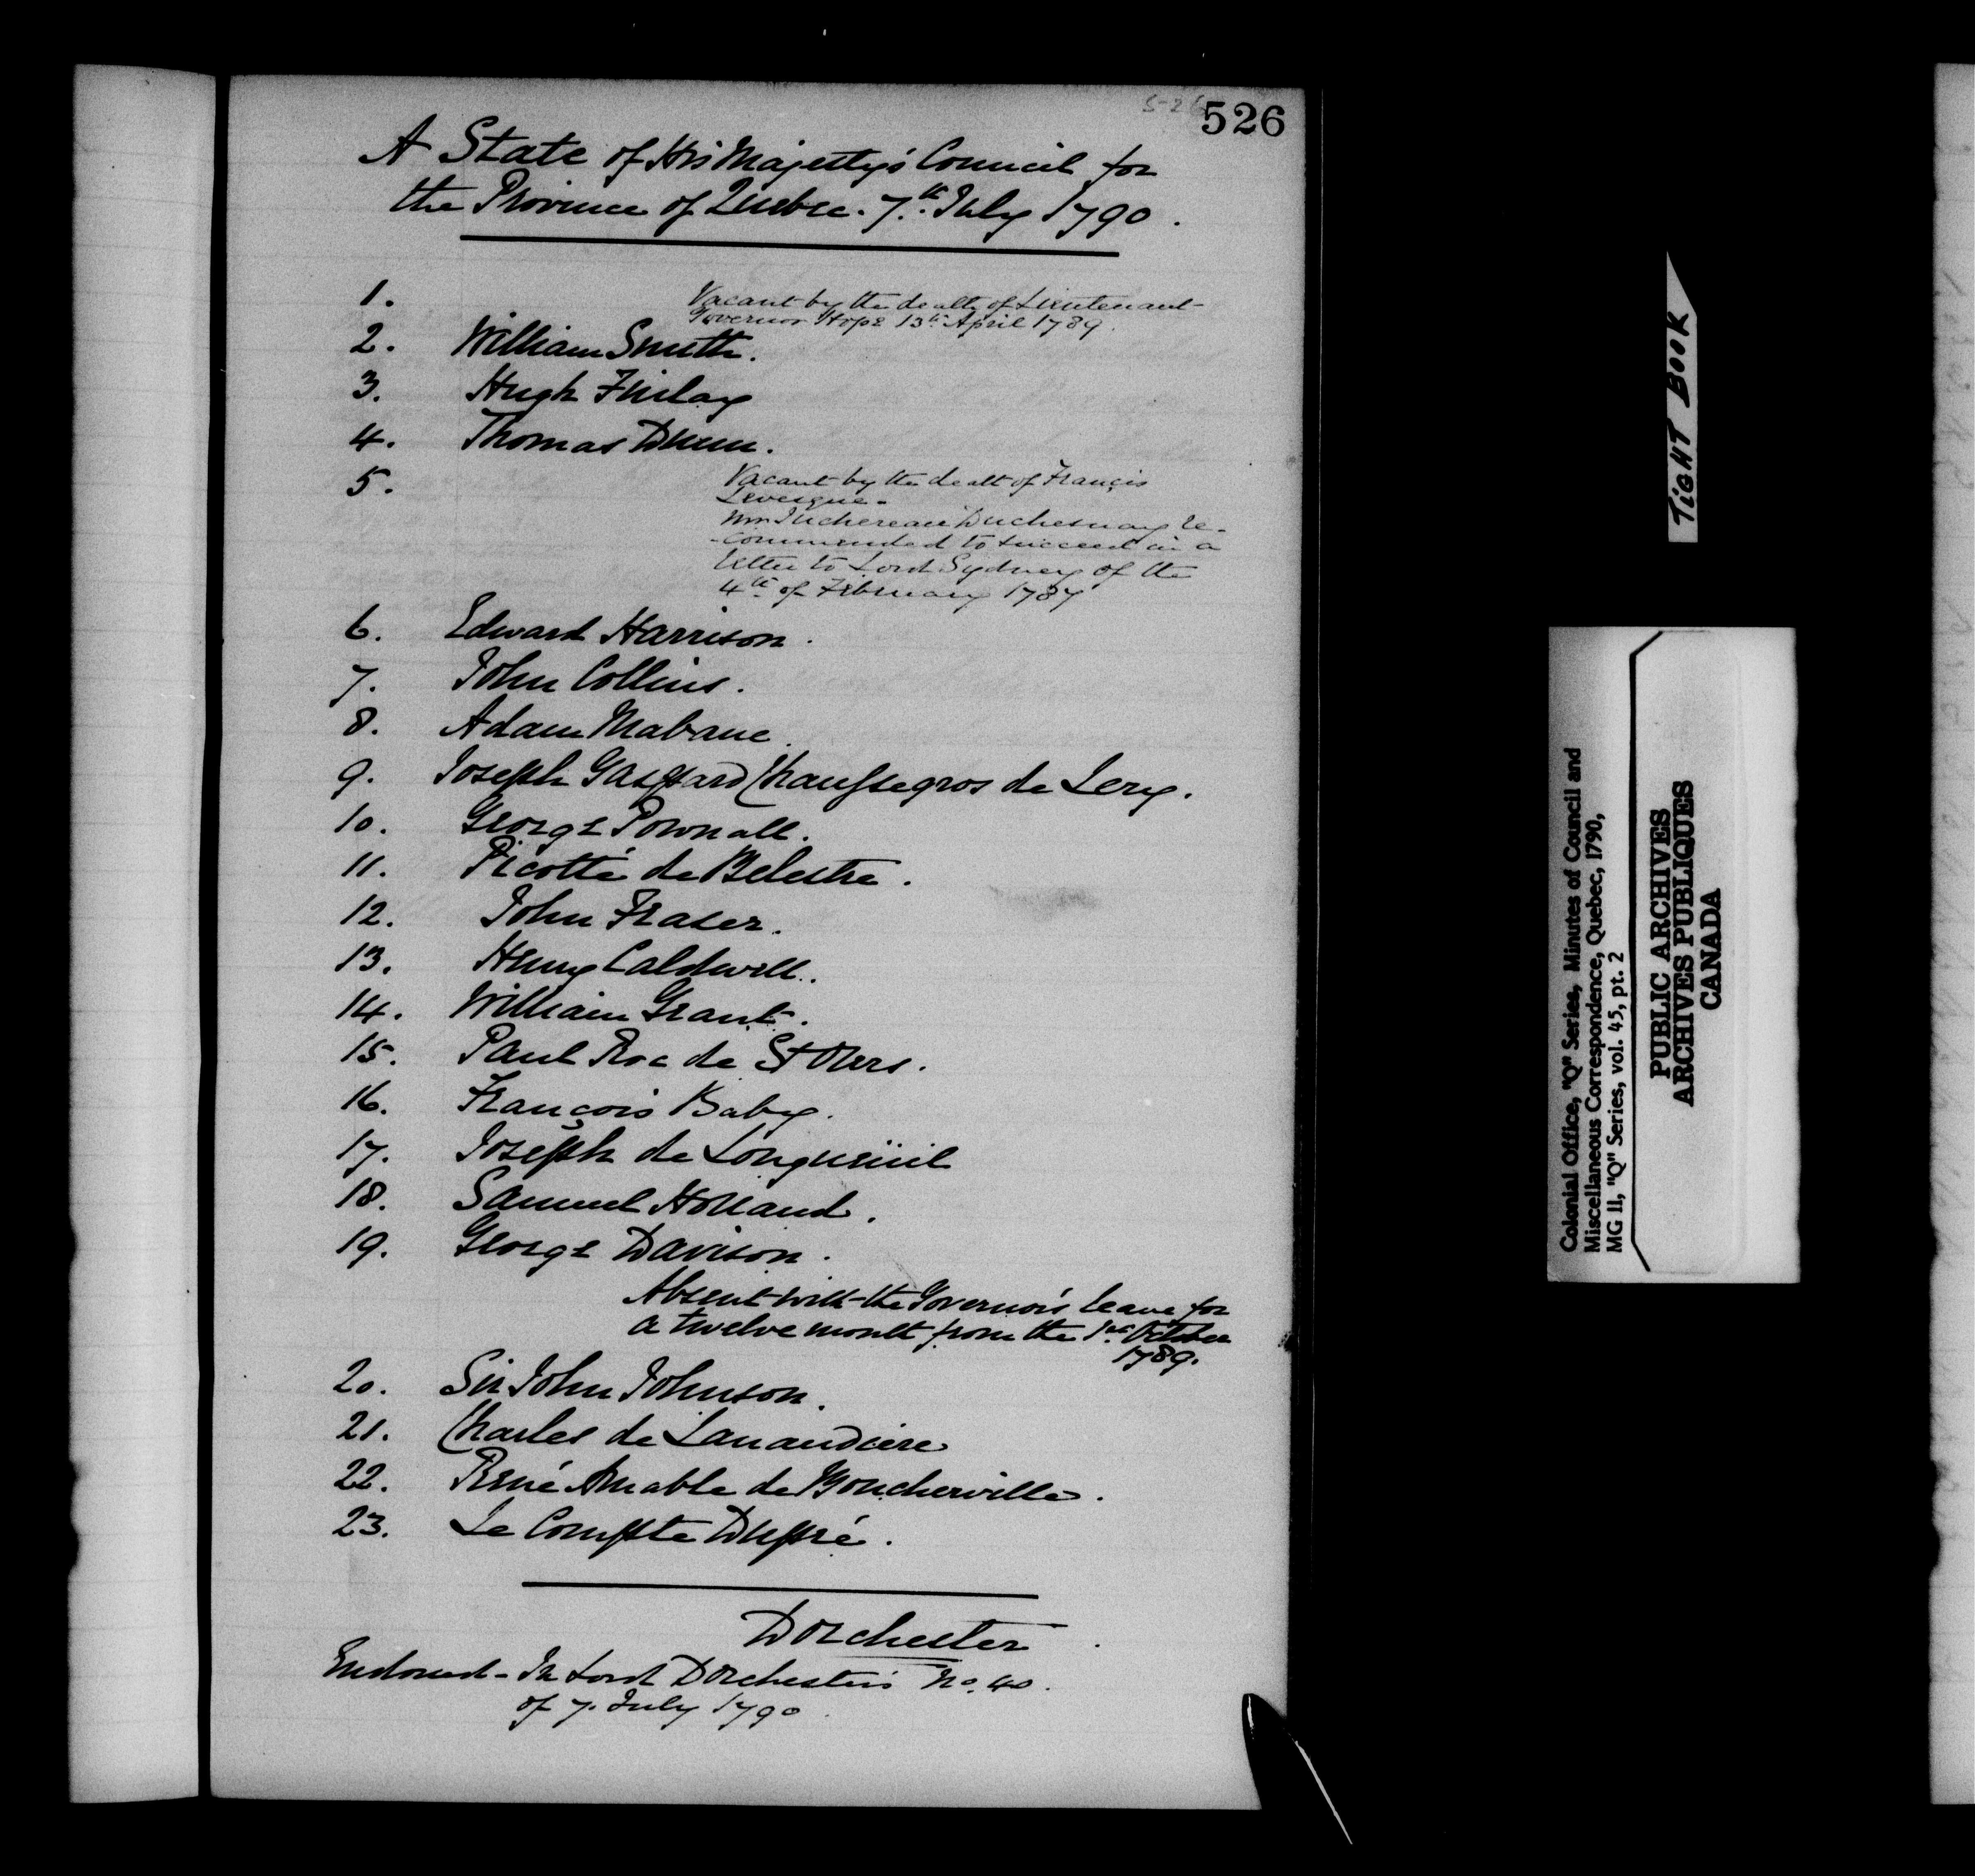 526
526
A State of His Majesty's Council for
the Province of Quebec. 7th July 1790.
1. Vacant by the death of Lieutenant-
Governor Hope 13th April 1789.
2. William Smith.
3. Hugh Finlay
4. Thomas Dunn.
5. Vacant by the death of Françis
Levesque.
Mr Juchereau Duchesnay re-
-commended to succeed in a
letter to Lord Sydney of the
4th of February 1787
6. Edward Harrison.
7. John Collins.
8. Adam Mabane.
9. Joseph Gaspard Chaussegros de Lery.
10. George Pownall.
11. Picotté de Belestre.
12. John Fraser.
13. Henry Caldwell.
14. William Grant.
15. Paul Roc de St Ours.
16. François Baby.
17. Joseph de Longueüil
18. Samuel Holland.
19. George Davison.
Absent with the Governor's leave for
a twelve month from the 1st October
1789.
20. Sir John Johnson.
21. Charles de Lanaudiere
22. René Amable de Boucherville.
23. Le Compte Dupré.
Dorchester.
Endorsed - In Lord Dorchester's No. 40.
of 7. July 1790
TIGHT BOOK
Colonial Office, "Q" Series, Minutes of Council and
Miscellaneous Correspondence, Quebec, 1790,
MG 11, "Q" Series, vol. 45, pt. 2
PUBLIC ARCHIVES
ARCHIVES PUBLIQUES
CANADA